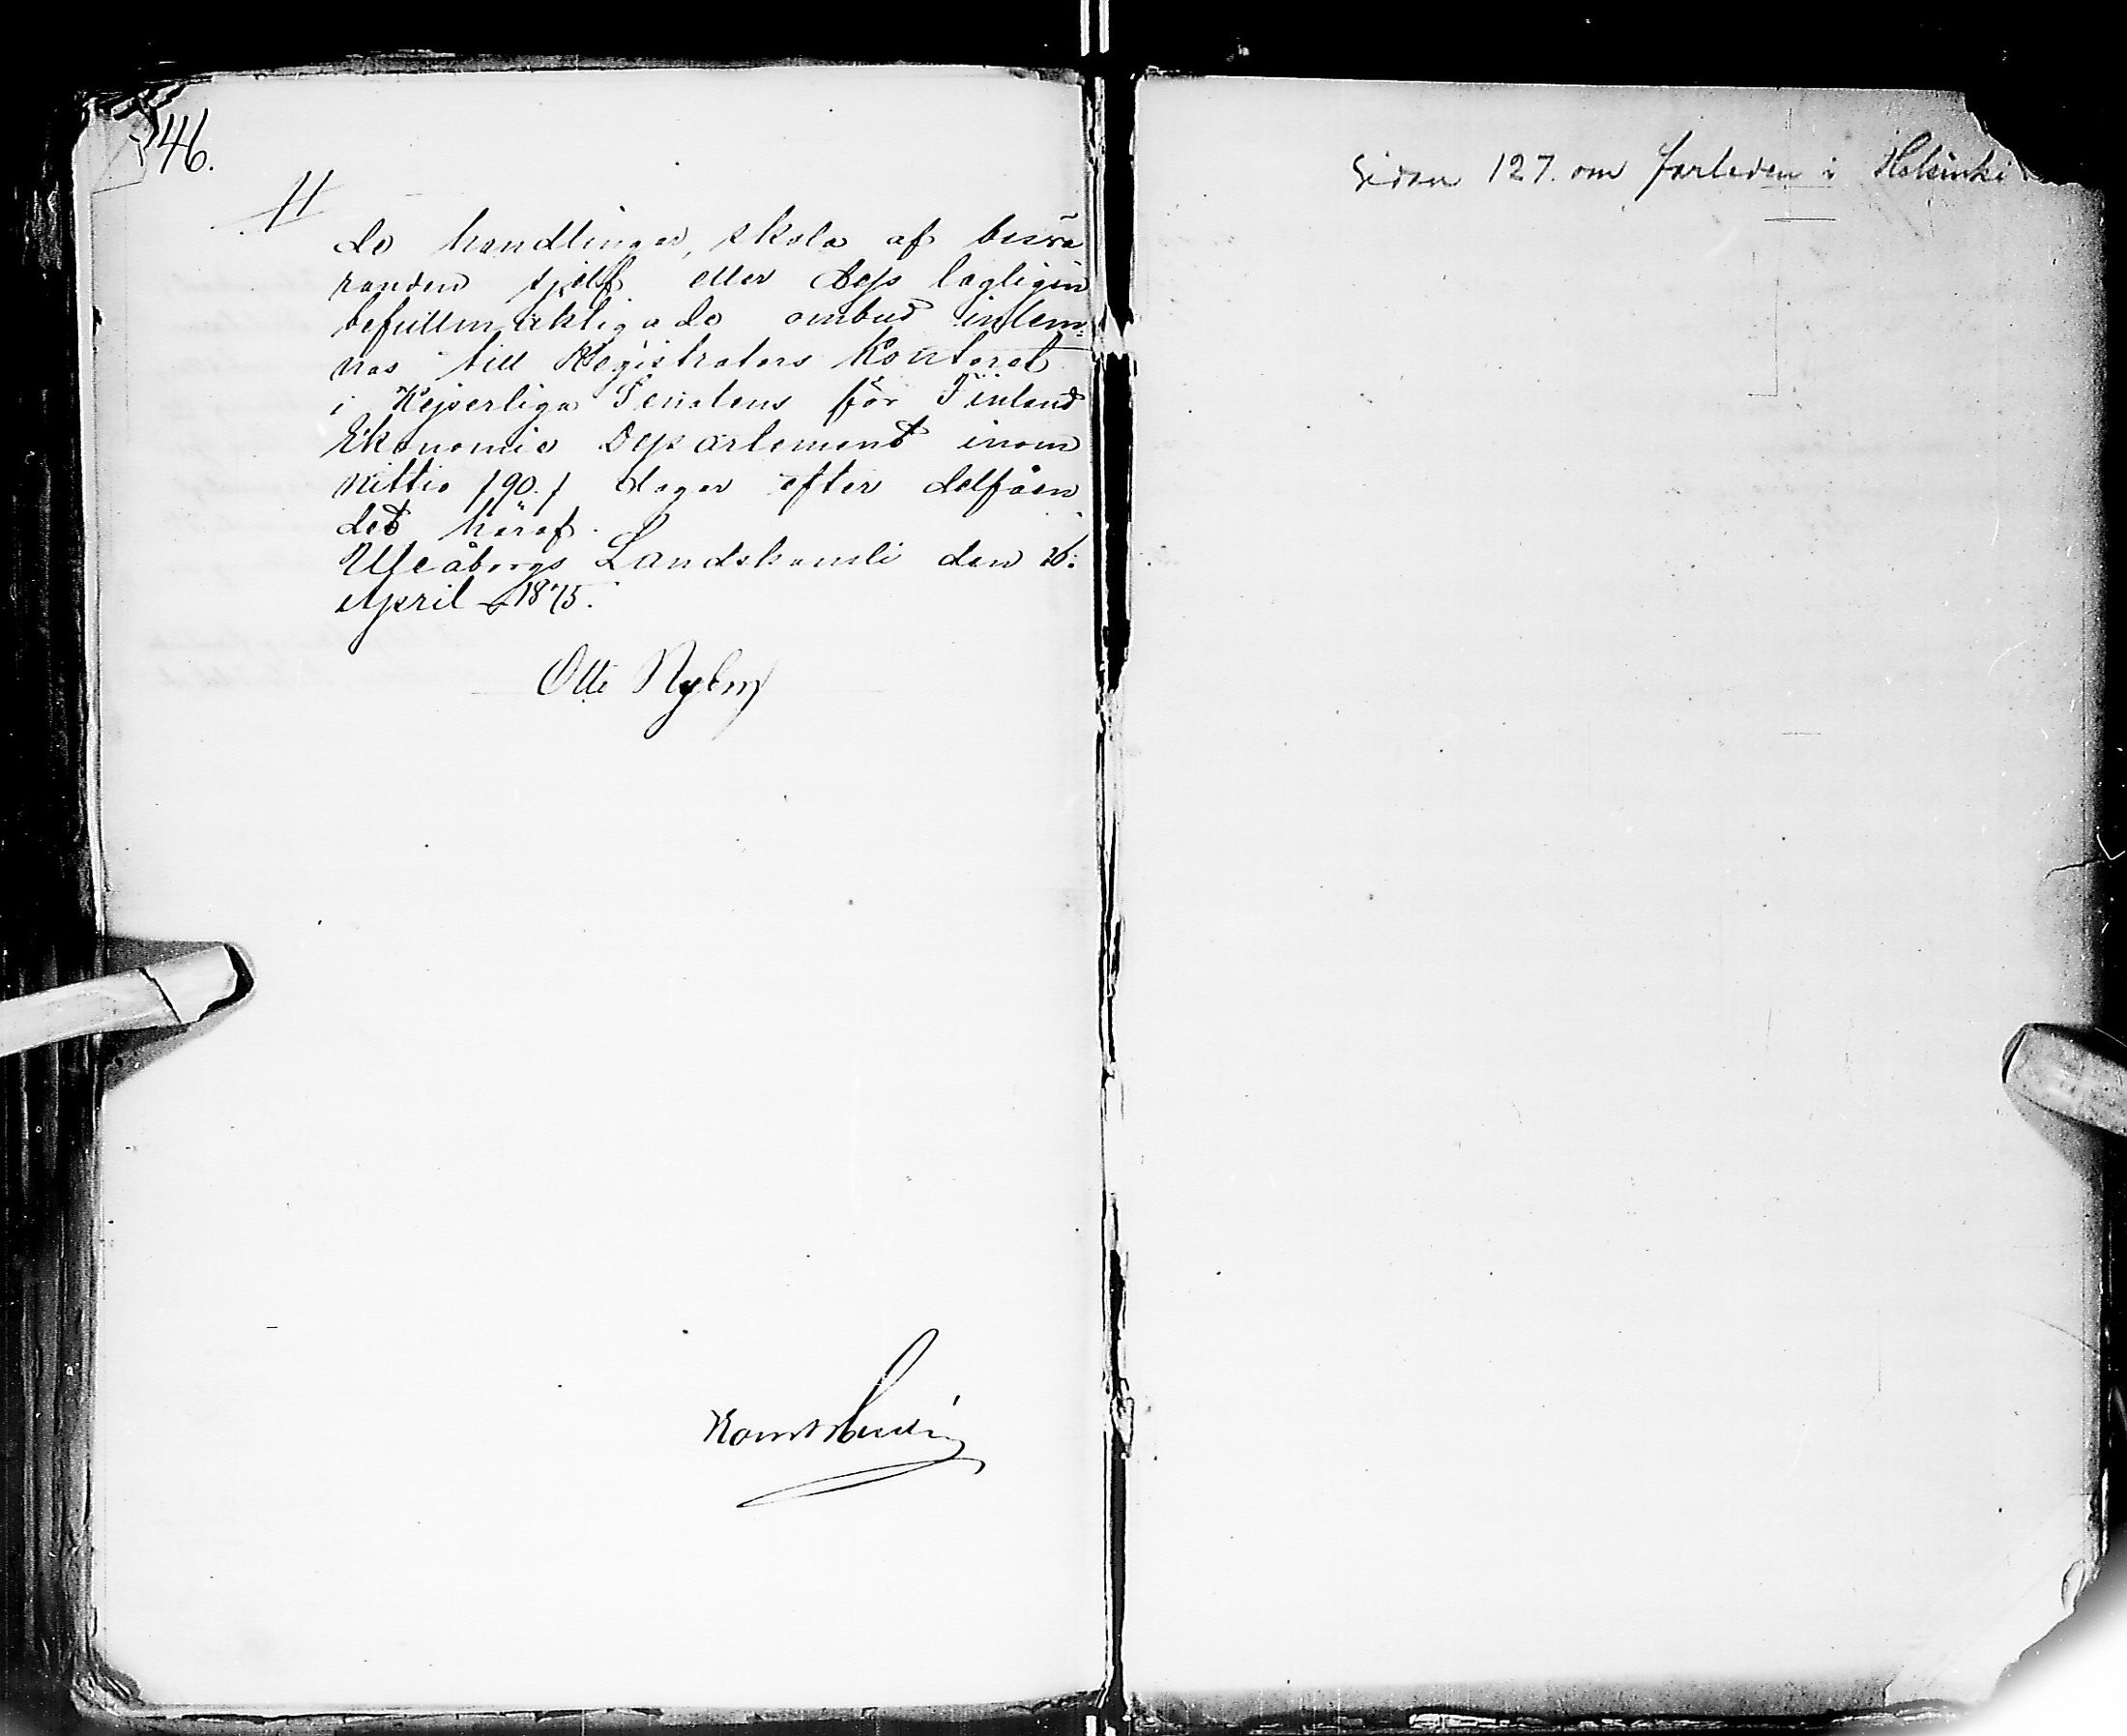 146.
de handlingar, skola af besvä
randen sjelf eller dess lagligen
befullmäktigade ombud inlem=
nas till Registrators Kontoret
i Kejserliga Senatens för Finland
Ekonomie Departement inom
nittio /90./ dagar efter delfåen
det häraf.
Uleåborgs Landskansli den
April 1875.
Otto
Sidan 127. om farleden i